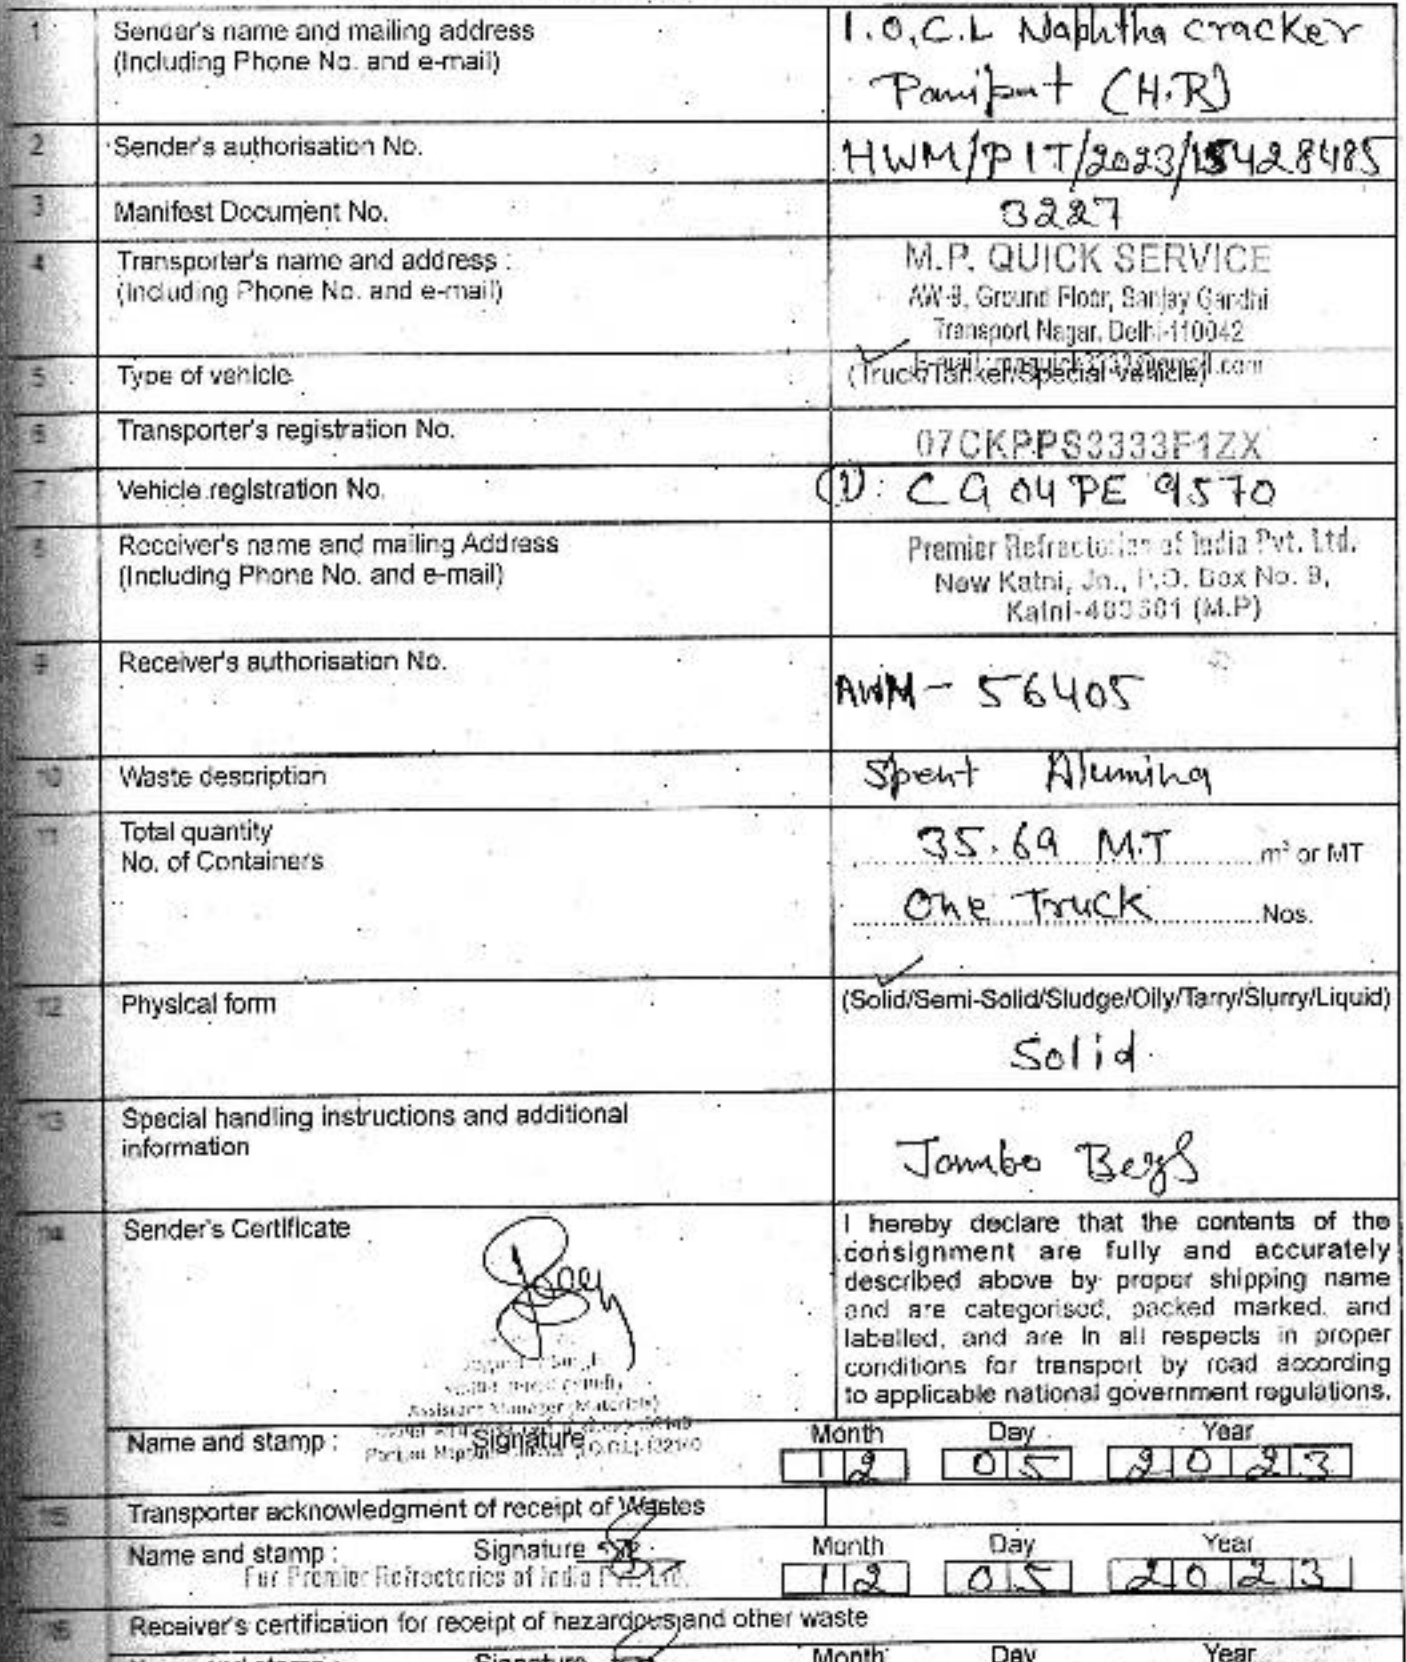 1 Sender's name and mailing address
(Including Phone No. and e-mail)
I.O.C.L Naphtha cracker
Panipat (H.R)
2 Sender's authorisation No.
HWM/PIT/2023/15428485
3 Manifest Document No.
3227
4 Transporter's name and address :
(Including Phone No. and e-mail)
M.P. QUICK SERVICE
AW-9, Ground Floor, Sanjay Gandhi
Transport Nagar, Delhi-110042
E-mail :
5 Type of vehicle
(Truck/Tanker/Special Vehicle)
6 Transporter's registration No.
07CKPPS3333F1ZX
7 Vehicle registration No.
(1): CG 04 PE 9570
8 Receiver's name and mailing Address
(Including Phone No. and e-mail)
Premier Refractories of India Pvt. Ltd.
New Katni, Jn., P.O. Box No. 9,
Katni-483501 (M.P)
9 Receiver's authorisation No.
AWM - 56405
10 Waste description
Spent Alumina
11 Total quantity
No. of Containers
35.69 M.T m³ or MT
One Truck Nos.
12 Physical form
(Solid/Semi-Solid/Sludge/Oily/Tarry/Slurry/Liquid)
Solid
13 Special handling instructions and additional
information
Jambo Begs
14 Sender's Certificate
I hereby declare that the contents of the
consignment are fully and accurately
described above by proper shipping name
and are categorised, packed marked, and
labelled, and are in all respects in proper
conditions for transport by road according
to applicable national government regulations.
Singh
Assistant Manager (Materials)
Name and stamp : Signature Month Day Year
12 05 2023
15 Transporter acknowledgment of receipt of Wastes
Name and stamp : Signature Month Day Year
For Premier Refractories of India Pvt. Ltd.
12 05 2023
16 Receiver's certification for receipt of hazardous and other waste
Name and stamp : Signature Month Day Year